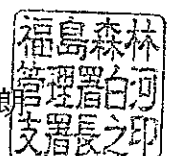 朗
福島森林
管理署白河
支署長之印